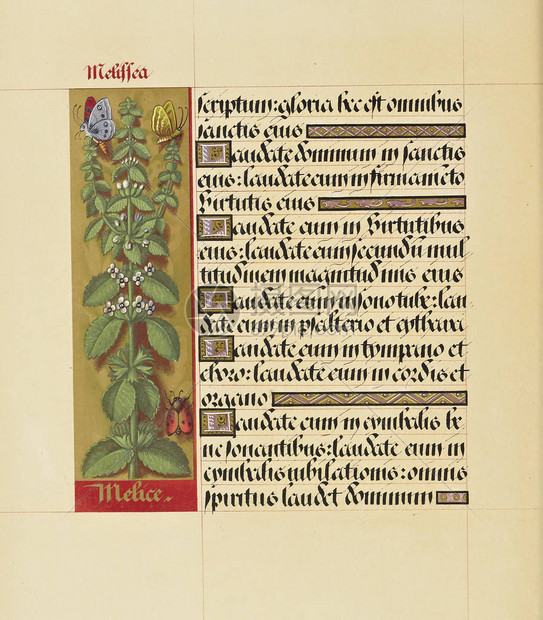 Melissea
scriptum: gloria hec est omnibus
sanctis eius
Laudate dominum in sanctis
eius: laudate eum in firmamēto
Virtutis eius
Laudate eum in Virtutibus
eius: laudate eum secundū mul
titudinem magnitudinis eius
Laudate eum in sono tube: lau
date eum in psalterio et cythara
Laudate eum in tympano et
choro: laudate eum in cordis et
organo
Laudate eum in cymbalis be
ne sonantibus: laudate eum in
cymbalis iubilationis: omnis
spiritus laudet dominum
Melice.